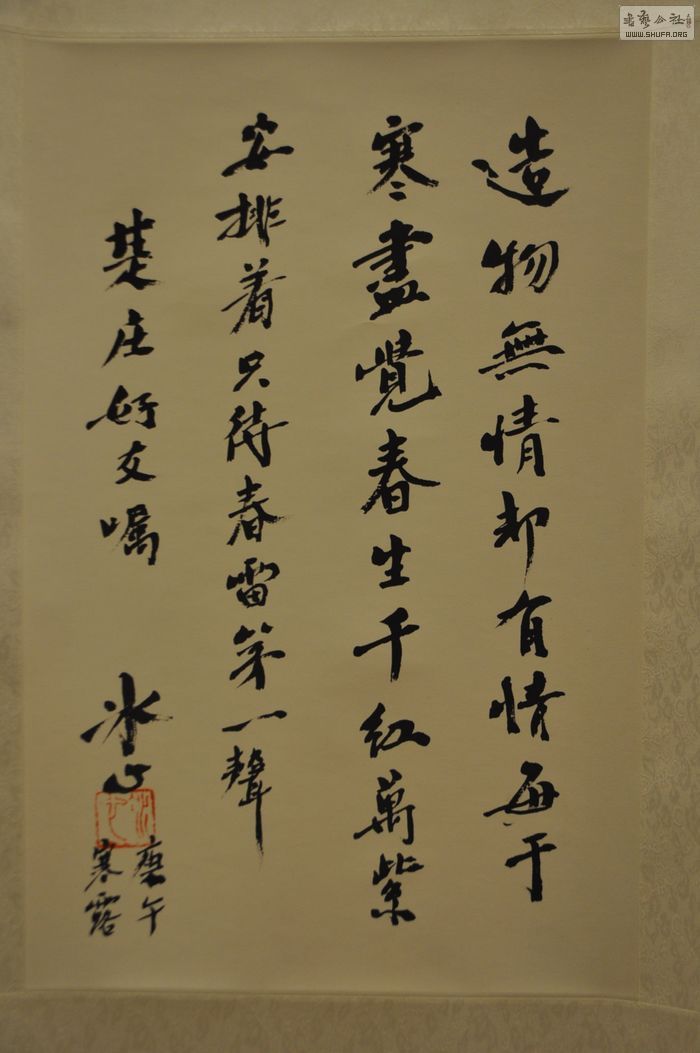 造物無情却有情每于
寒盡覺春生千紅萬紫
安排着只待春雷第一聲
楚庄好友嘱
冰心
庚午
寒露
WWW.SHUFA.ORG